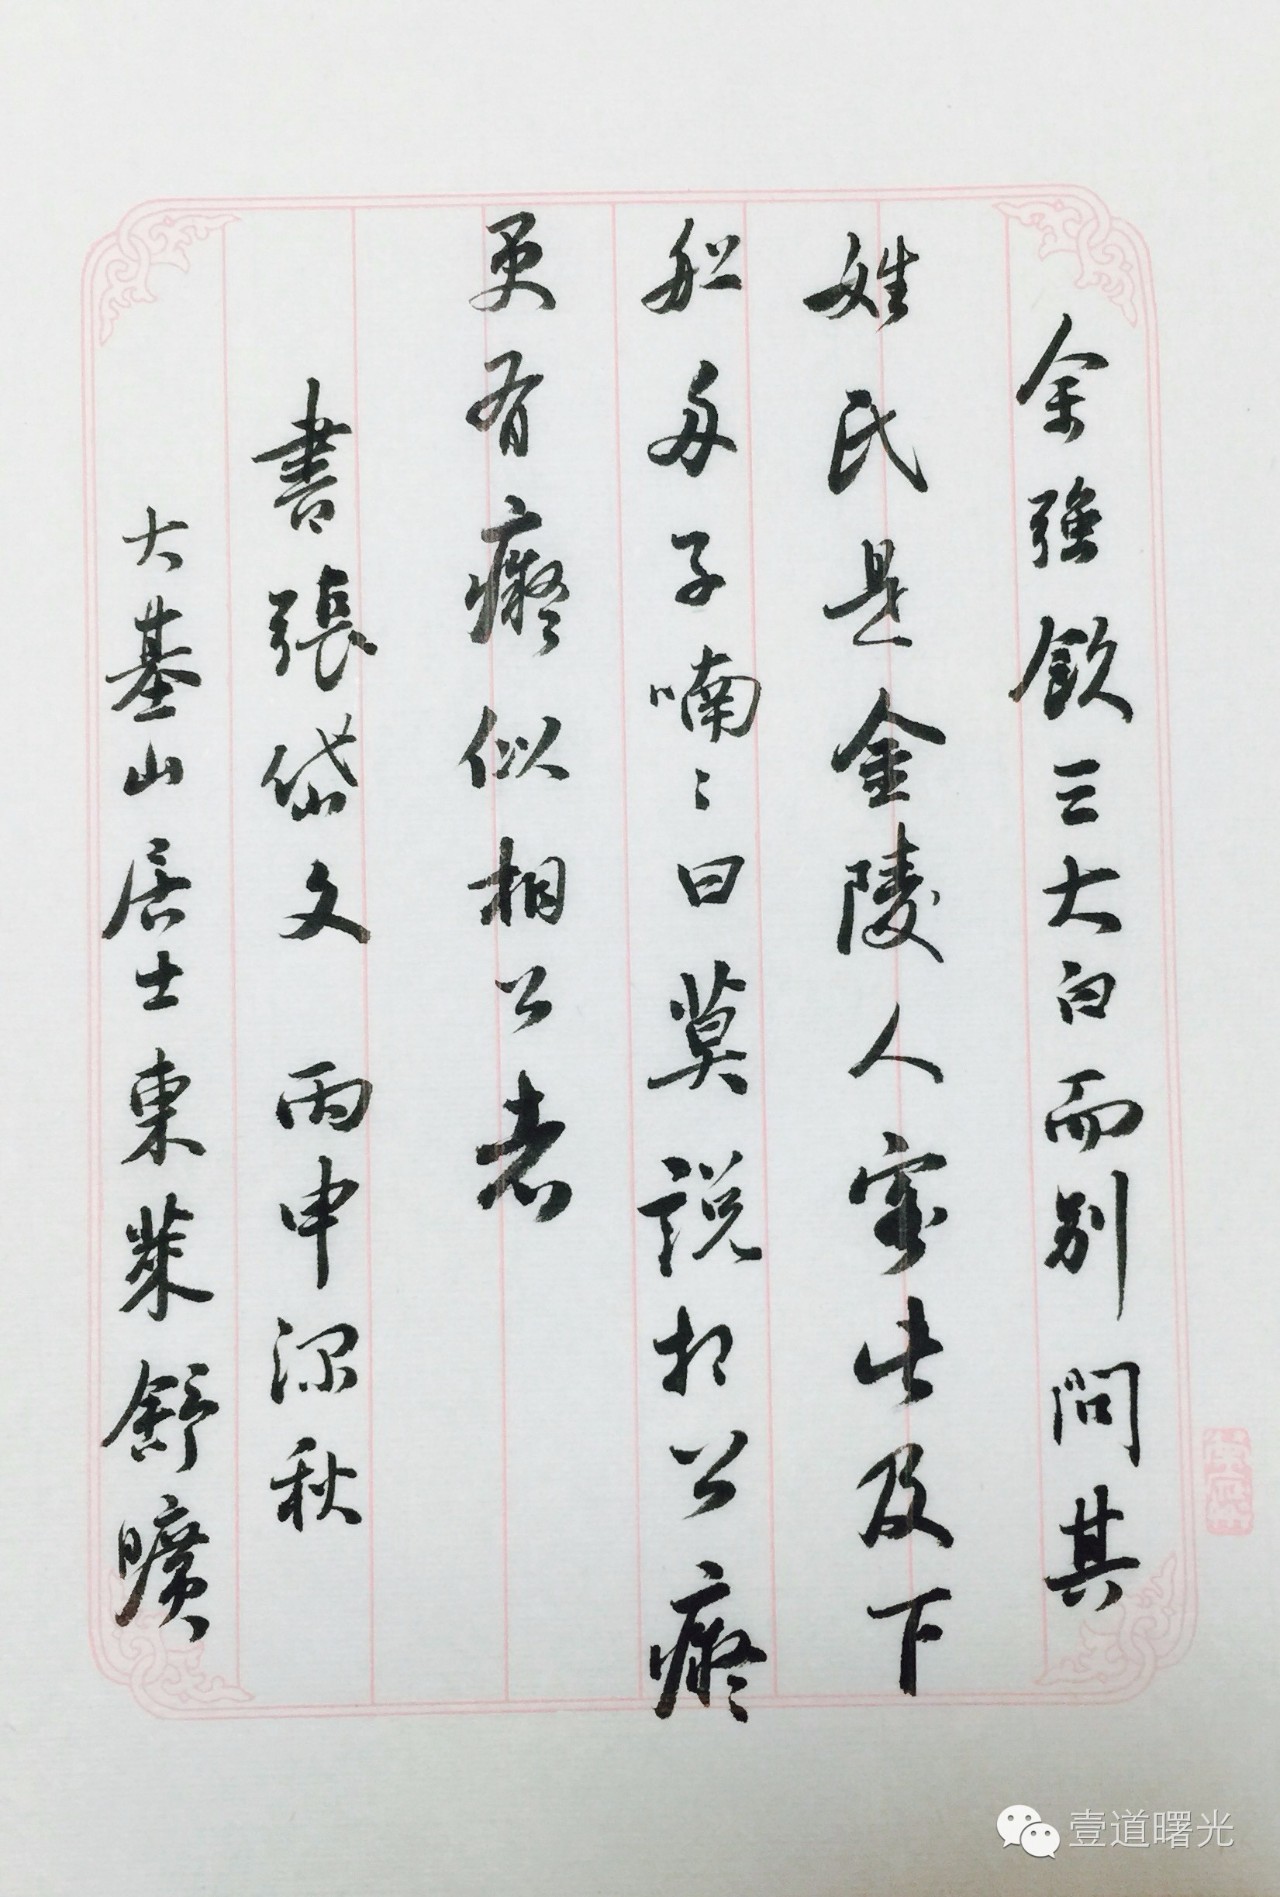 余強飲三大白而別問其
姓氏是金陵人客此及下
船舟子喃〻曰莫説相公癡
更有癡似相公者
書張岱文 丙申深秋
大基山居士東萊舒曠
壹道曙光